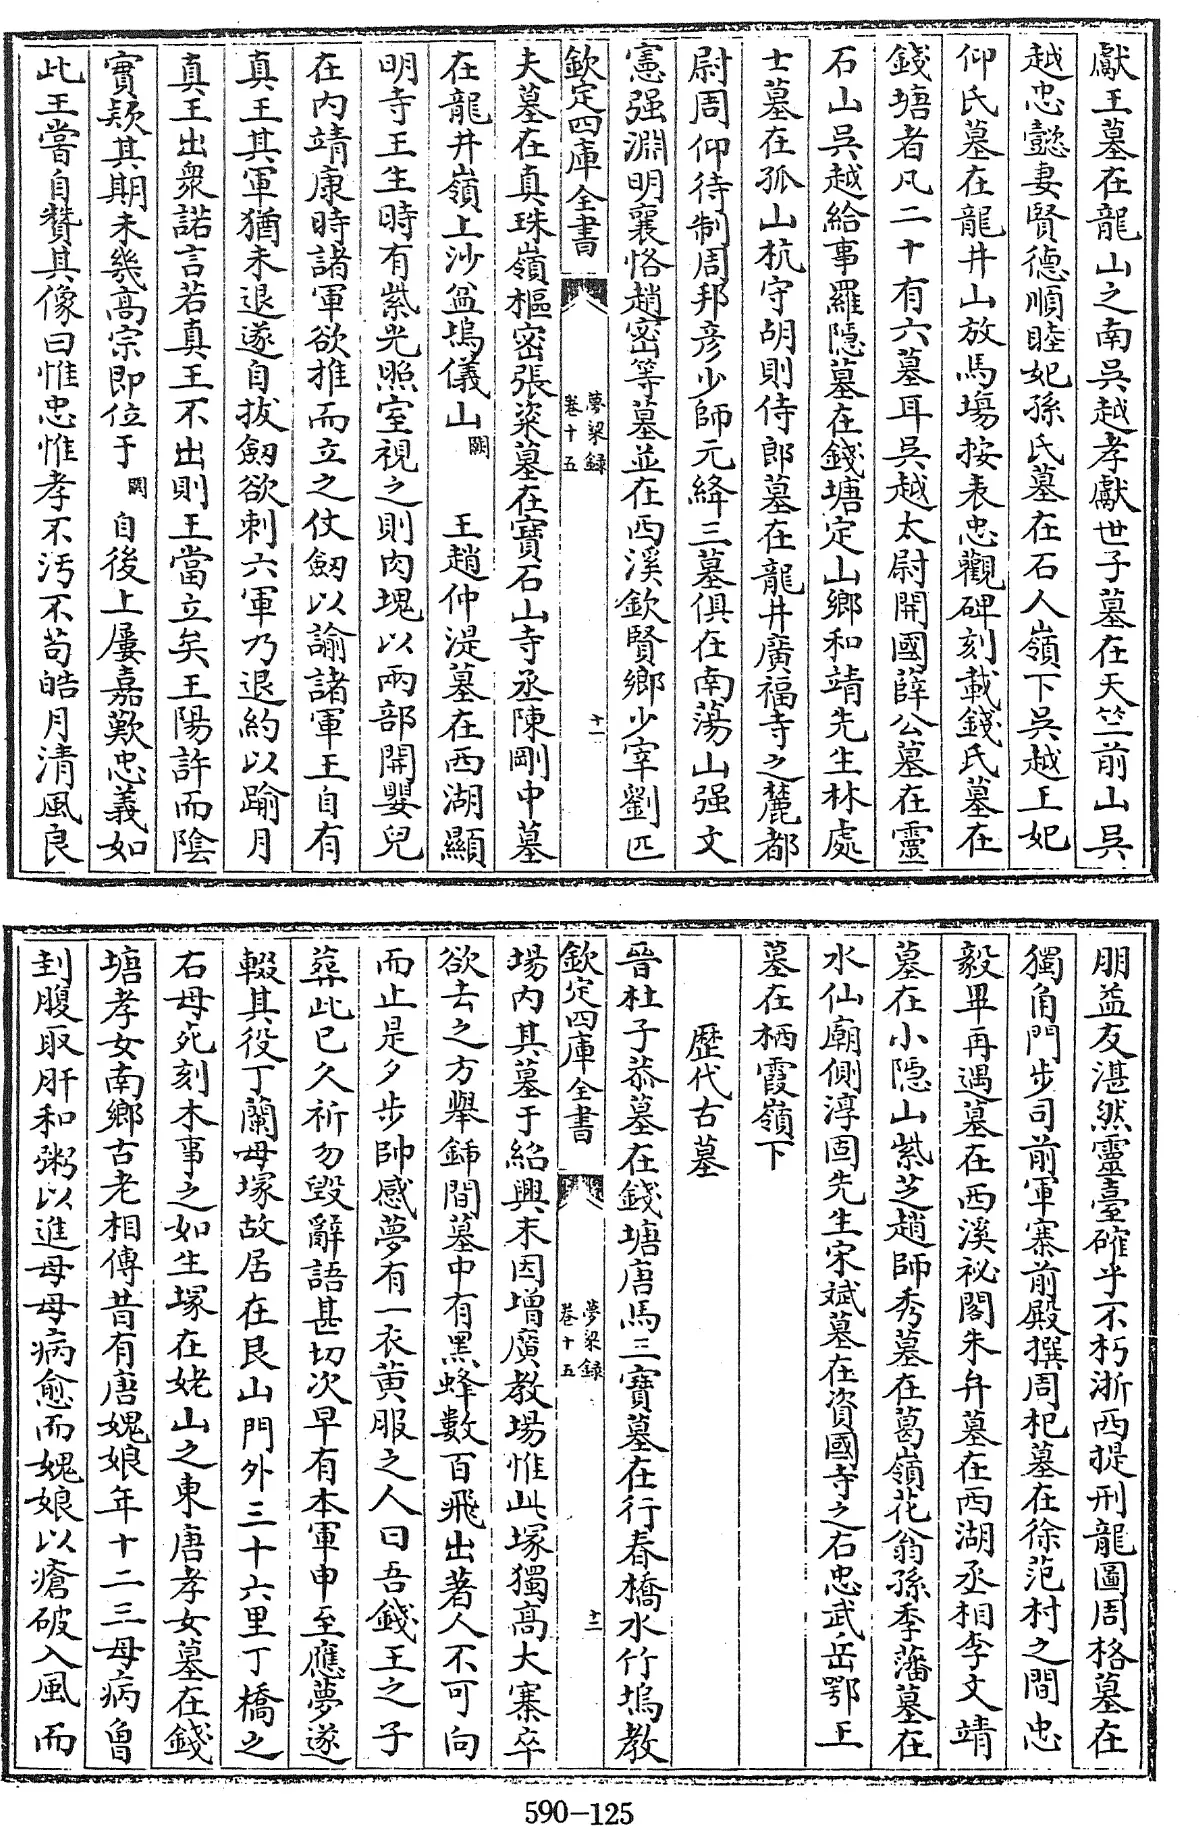 獻王墓在龍山之南吳越孝獻世子墓在天竺前山吳
越忠懿妻賢德順睦妃孫氏墓在石人嶺下吳越王妃
仰氏墓在龍井山放馬塲按表忠觀碑刻載錢氏墓在
錢塘者凡二十有六墓耳吳越太尉開國薛公墓在靈
石山吳越給事羅隱墓在錢塘定山鄉和靖先生林處
士墓在孤山杭守胡則侍郎墓在龍井廣福寺之麓都
尉周仰待制周邦彦少師元絳三墓俱在南蕩山强文
憲强淵明襄恪趙密等墓並在西溪欽賢鄉少宰劉匹
欽定四庫全書
夢梁録
卷十五
十一
夫墓在真珠嶺樞密張楶墓在寶石山寺丞陳剛中墓
在龍井嶺上沙盆塢儀山闕王趙仲湜墓在西湖顯
明寺王生時有紫光照室視之則肉塊以兩部開嬰兒
在内靖康時諸軍欲推而立之仗劒以諭諸軍王自有
真王其軍猶未退遂自拔劒欲刺六軍乃退約以踰月
真王出衆諾言若真王不出則王當立矣王陽許而陰
實欵其期未幾髙宗即位于闕自後上屢嘉歎忠義如
此王嘗自贊其像曰惟忠惟孝不汚不茍皓月清風良
朋益友湛然靈臺確乎不朽浙西提刑龍圖周格墓在
獨角門步司前軍寨前殿撰周杞墓在徐范村之間忠
毅畢再遇墓在西溪祕閣朱弁墓在西湖丞相李文靖
墓在小隱山紫芝趙師秀墓在葛嶺花翁孫季蕃墓在
水仙廟側淳固先生宋斌墓在資國寺之右忠武岳鄂王
墓在栖霞嶺下
歴代古墓
晉杜子恭墓在錢塘唐馬三寶墓在行春橋水竹塢教
欽定四庫全書
夢梁録
卷十五
十二
場内其墓于紹興末因增廣教場惟此塚獨高大寨卒
欲去之方舉鍤間墓中有黑蜂數百飛出著人不可向
而止是夕步帥感夢有一衣黄服之人曰吾錢王之子
葬此已久祈勿毁辭語甚切次早有本軍申至應夢遂
輟其役丁蘭母塚故居在艮山門外三十六里丁橋之
右母死刻木事之如生塚在姥山之東唐孝女墓在錢
塘孝女南鄉古老相傳昔有唐媿娘年十二三母病魯
刲腹取肝和粥以進母母病愈而媿娘以瘡破入風而
590-125